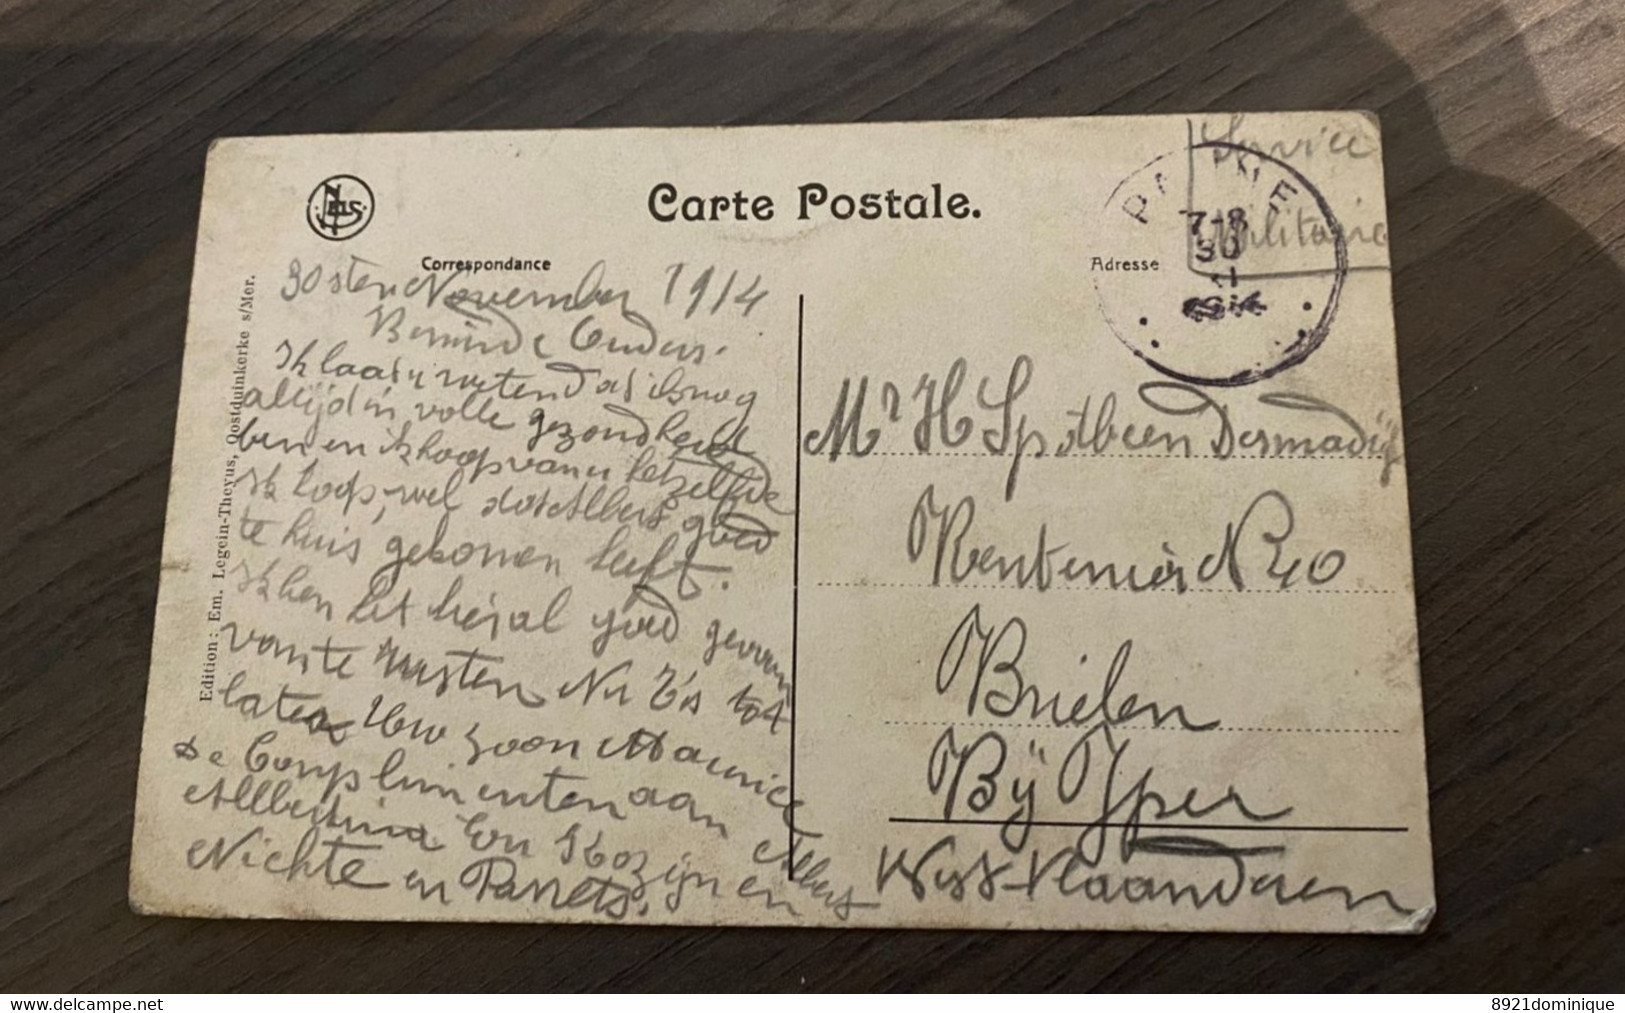 Carte Postale.
Correspondance
Adresse
Service
Militaire
PANNE
7-8
30
1914
Edition: Em. Legein-Theyus, Oostduinkerke s/Mer.
30sten November 1914
Beminde Ouders.
Ik laat u weten dat ik nog
altijd in volle gezondheid
ben en ik hoop van u hetzelfde
Ik hoop wel dat Albert goed
te huis gekomen heeft.
Ik ben het hier al goed gewoon
van te rusten Nu t'is tot
later Uw zoon Maurice
De Complimenten aan Albert
Albertina En Kozijn en
Nichte en
Mr H Spilbeen Desmadijl
Rentenier N 20
Brielen
Bij Yper
West-Vlaanderen
delcampe.net
8921dominique